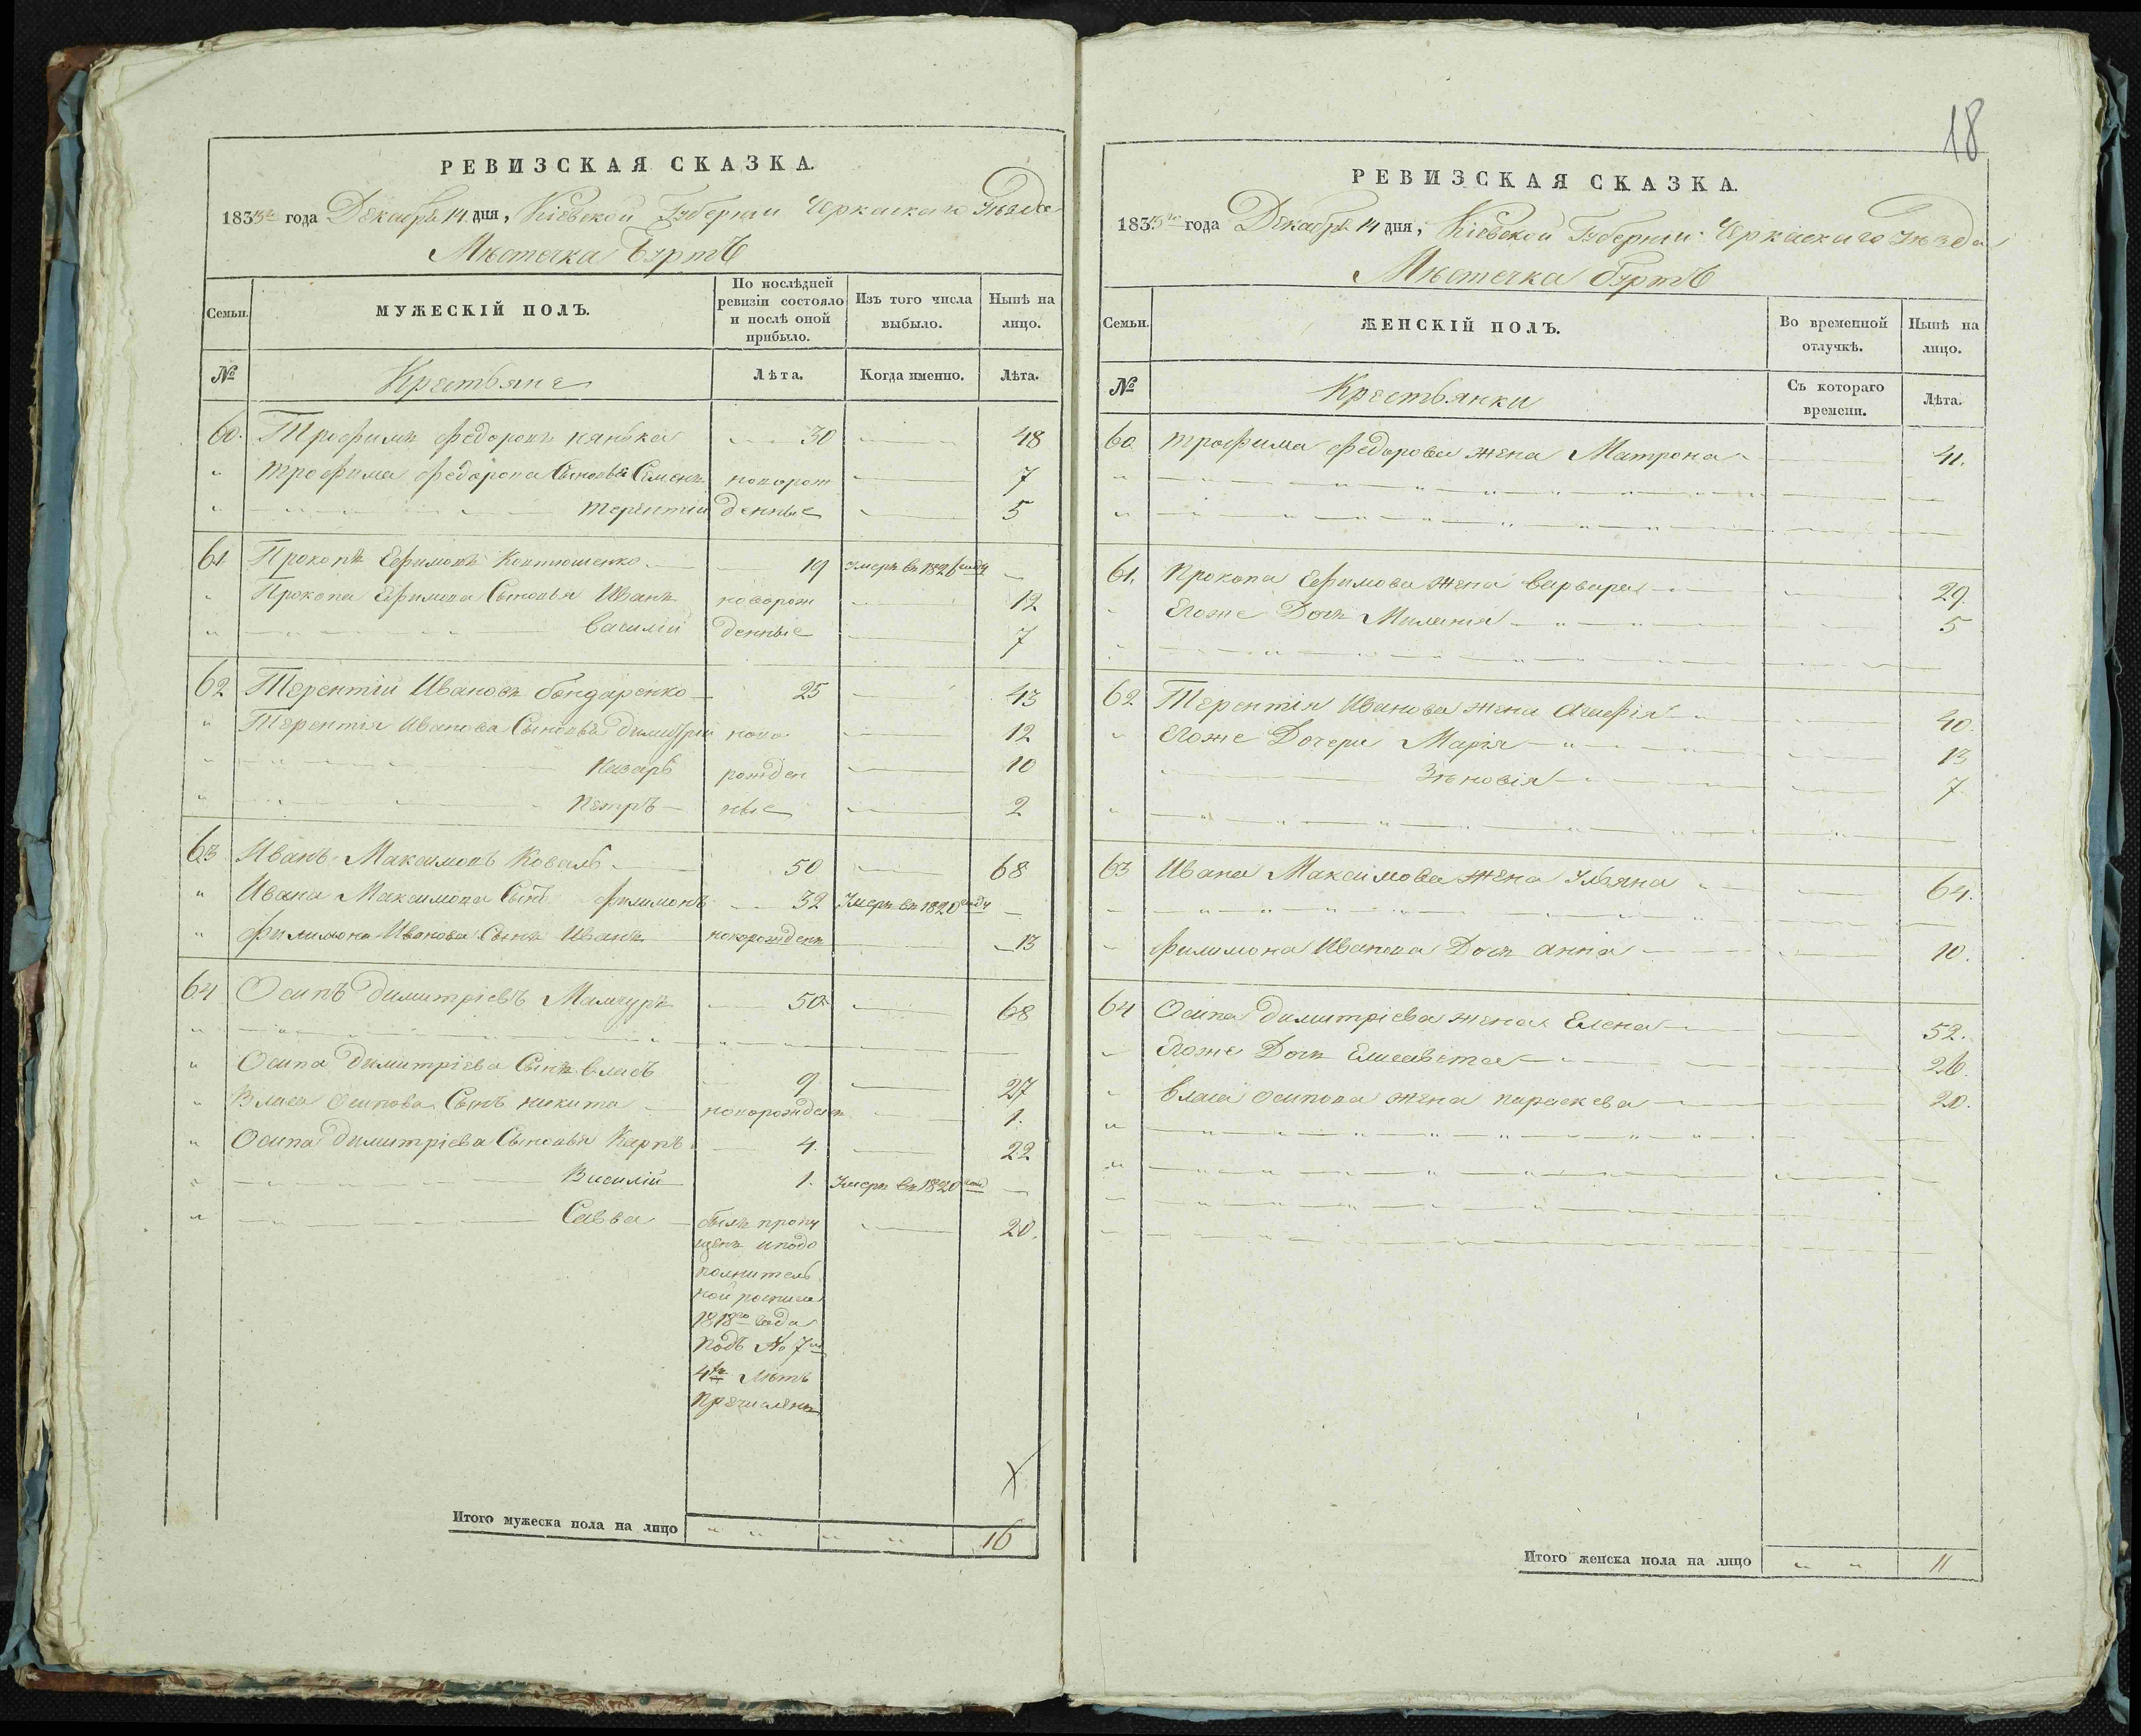 РЕВИЗСКАЯ СКАЗКА.
1833го года Декабря 14 дня, Кіевской Губерніи Черкаскаго Уѣзда
Мѣстечка Буртъ
Семьи. МУЖЕСКІЙ ПОЛЪ. По послѣдней ревизіи состояло и послѣ оной прибыло. Изъ того числа выбыло. Нынѣ на лицо.
№ Крестьяне Лѣта. Когда именно. Лѣта.
60. Трофимъ Федоровъ 30 48
Трофима Федорова Сыновья Семенъ новорож 7
терентій денные 5
61 Прокопъ Ефимовъ 19 умеръ въ 1826 году
Прокопа Ефимова Сыновья Иванъ новорож 12
Василій денные 7
62 Терентій Ивановъ бондаренко 25 43
Терентія Иванова Сыновья димитрій ново 12
Назаръ рожден 10
петръ ные 2
63 Иванъ Максимовъ Коваль 50 68
Ивана Максимова Сынъ филимонъ 32 Умеръ въ 1820 году
филимона Иванова Сынъ Иванъ новорожденъ 13
64 Осипъ димитріевъ Мамчуръ 50 68
Осипа димитріева Сынъ власъ 9 27
Власа осипова Сынъ никита новорожденъ 1.
Осипа димитріева Сыновья Карпъ 4. 22
Василій 1. Умеръ въ 1820 году
Савва былъ пропу 20.
щенъ и по до
полнитель
ной росписи
1818го года
подъ № 7м
4хъ лѣтъ
Причисленъ
Итого мужеска пола на лицо 16
18
РЕВИЗСКАЯ СКАЗКА.
1833го года Декабря 14 дня, Кіевской Губерніи Черкаскаго Уѣзда
Мѣстечка Буртъ
Семьи. ЖЕНСКІЙ ПОЛЪ. Во временной отлучкѣ. Нынѣ на лицо.
№ Крестьянки Съ котораго времени. Лѣта.
60 трофима Федорова жена Матрона 41.
61. Прокопа Ефимова жена варвара 29.
Егоже Дочь Миланія 5
62 Терентія Иванова жена агафія 40.
Егоже Дочери Марія 13
Зѣновія 7
63 Ивана Максимова жена Ульяна 64.
филимона Иванова Дочь анна 10.
64 Осипа димитріева жена Елена 52.
Егоже Дочь Елисавета 26.
власа осипова жена параскева 20.
Итого женска пола на лицо 11